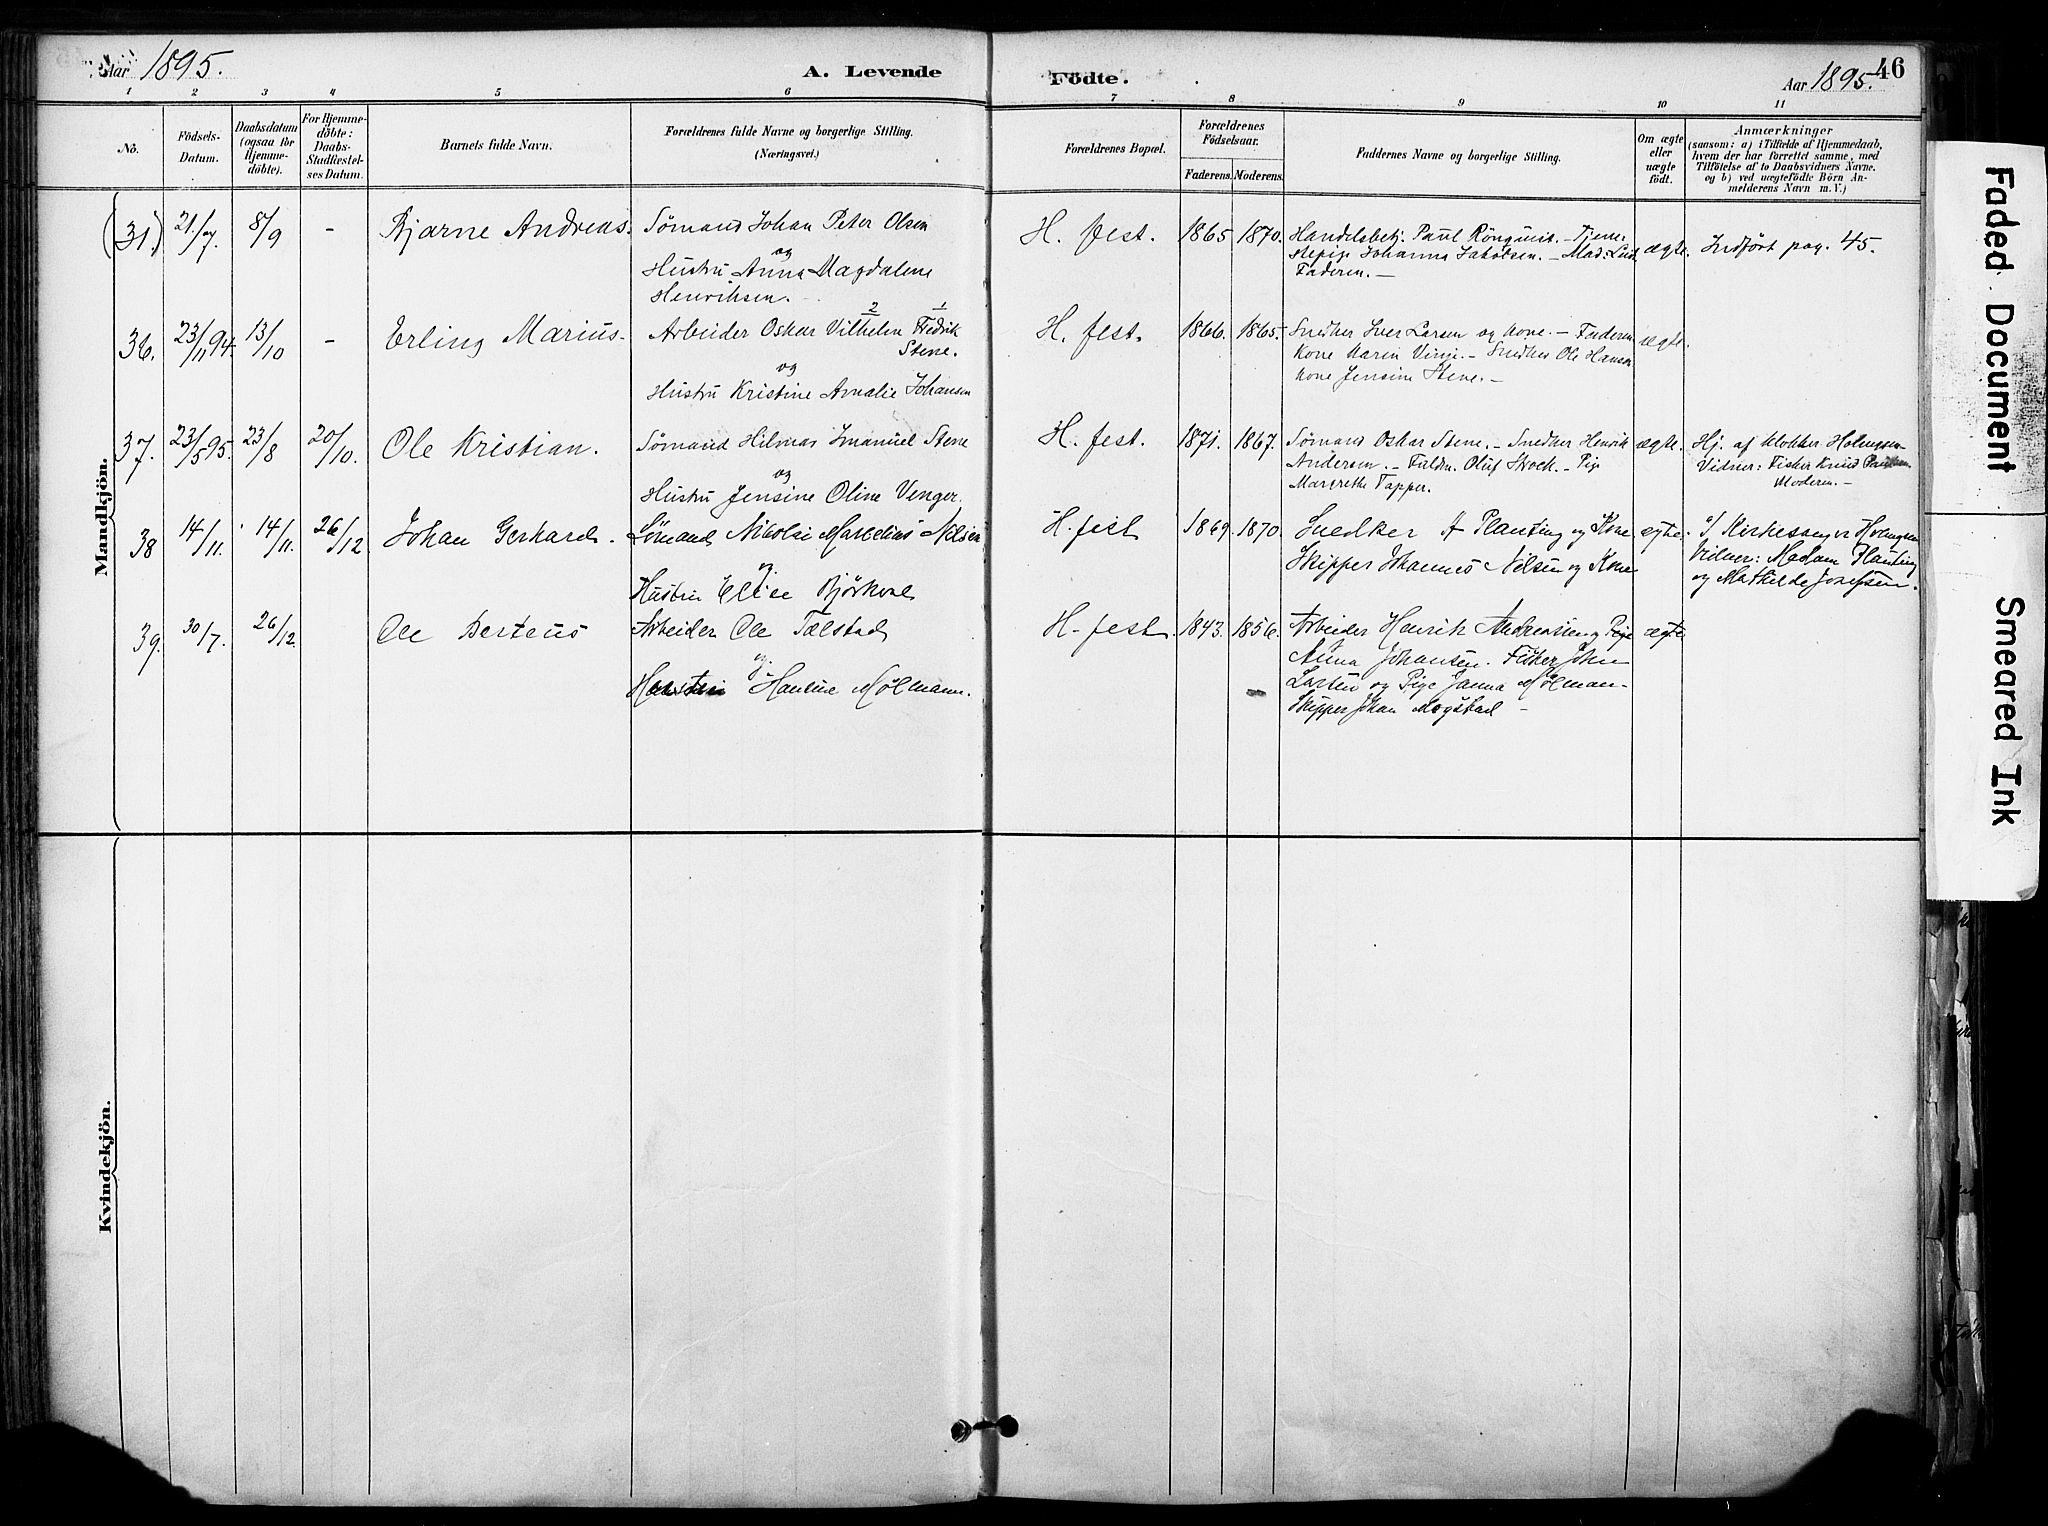 Aar 1895.
A. Levende Födte.
Aar 1895.
46
1 2 3 4 5 6 7 8 9 10 11
No.
Födsels-
Datum.
Daabsdatum
(ogsaa for
Hjemme-
döbte).
For Hjemme-
döbte:
Daabs-
Stadfæstel-
ses Datum.
Barnets fulde Navn.
Forældrenes fulde Navne og borgerlige Stilling.
(Næringsvei.)
Forældrenes Bopæl.
Forældrenes
Födselsaar.
Faderens. Moderens.
Faddernes Navne og borgerlige Stilling.
Om ægte
eller
uægte
födt.
Anmærkninger
(saasom: a) i Tilfælde af Hjemmedaab,
hvem der har forrettet samme, med
Tilföielse af to Daabsvidners Navne.
og b) ved uægtefödte Börn An-
melderens Navn m. V.)
Mandkjön.
(31.) 21/7. 8/9 - Bjarne Andreas.
Sømand Johan Peter Olsen
og
Hustru Anna Magdalene
Henriksen.
H. fest. 1865 1870.
Handelsbetj. Paul Rönquist. - Tjene-
stepige Johanna Jakobsen. - Mad:
Faderen. -
ægte. Indført pag. 45.
36. 23/11 94. 13/10 - Erling Marius.
2 1
Arbeider Oskar Vilhelm Fredrik
Stene.
og
Hustru Kristine Amalie Johansen
H. fest. 1866. 1865.
Snedker Iver Larsen og kone. - Faderen.
Kone Karen - Snedker Ole Hansen
kone Jensine Stene. -
ægte.
37. 23/5 95. 23/8 20/10. Ole Kristian.
Sømand Hilmar Imanuel Stene
og
Hustru Jensine Oline Venger.
H. fest. 1871. 1867.
Sømand Oskar Stene. - Snedker Henrik
Andersen. - Oluf - Pige
Margrethe Tapper.
ægte.
Hj. af klokker Holmgren
Vidner: Fisker Knud
Moderen. -
38 14/11. 14/11. 26/12. Johan Gerhard.
Sømand Nikolai Marselius Nilsen
og
Hustru Elise Bjørkval
H. fest 1869. 1870.
Snedker A Planting og Kone
Skipper Johannes Nilsen og Kone
egte.
Kirkesanger Holmgren
Vidner: Madam Planting
og Mathilde Josefsen.
39. 30/7. 26/12. Ole Berteus
Arbeider Ole Tælstad
og
Hustru Hansine Mølmann.
H. fest. 1843. 1856.
Arbeider Henrik Andreassen og Pige
Anna Johansen. Fisker John
Larsen og Pige Janna Mølman-
Skipper Johan Mogstad -
ægte
Kvindekjön.
Faded Document
Smeared Ink